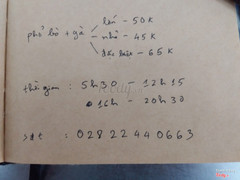 lớn - 50K
phở bò + gà - nhỏ - 45K
đặc biệt - 65K
thời gian : 5h30 - 12h15
16h - 20h30
sđt : 028 22 44 0663